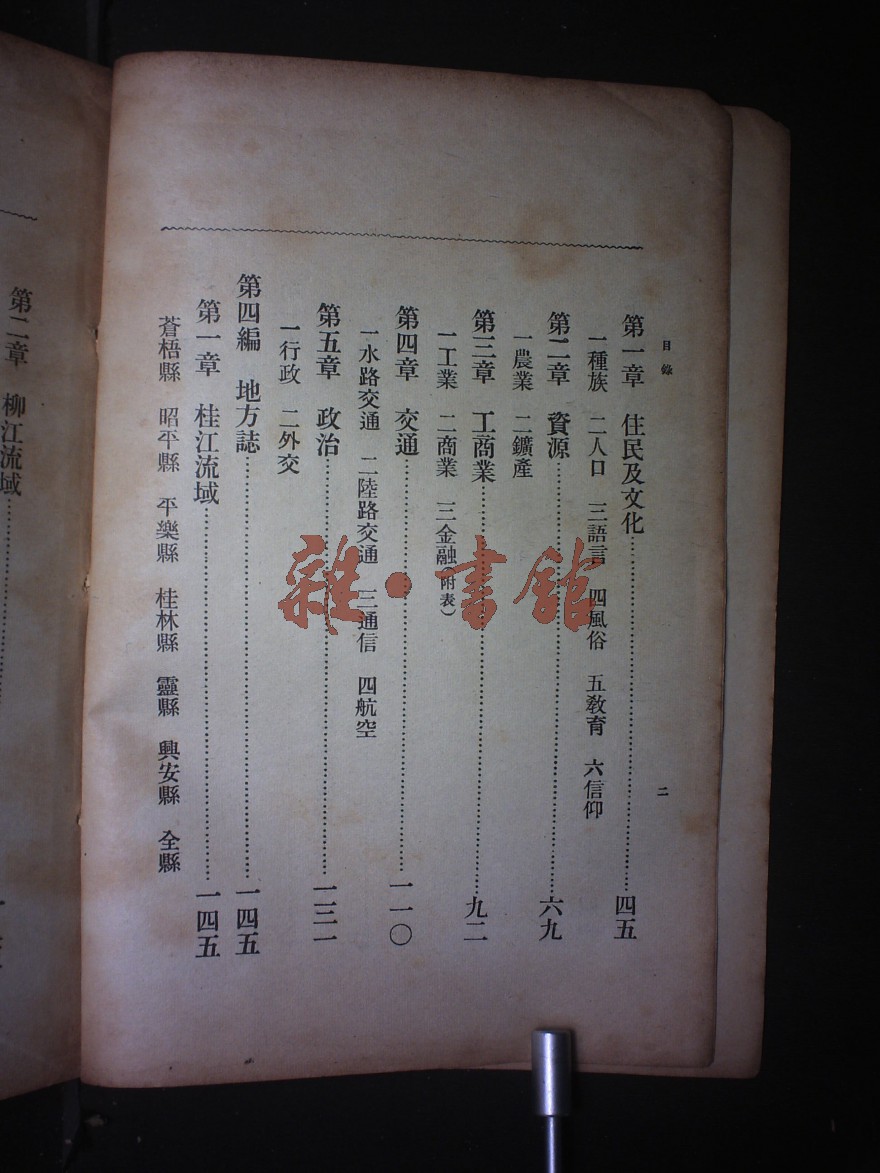 目錄
二
第一章 住民及文化……四五
一種族 二人口 三語言 四風俗 五教育 六信仰
第二章 資源……六九
一農業 二鑛產
第三章 工商業……九二
一工業 二商業 三金融(附表)
第四章 交通……一一〇
一水路交通 二陸路交通 三通信 四航空
第五章 政治……一三一
一行政 二外交
第四編 地方誌……一四五
第一章 桂江流域……一四五
蒼梧縣 昭平縣 平樂縣 桂林縣 靈縣 興安縣 全縣
第二章 柳江流域……
雜·書館